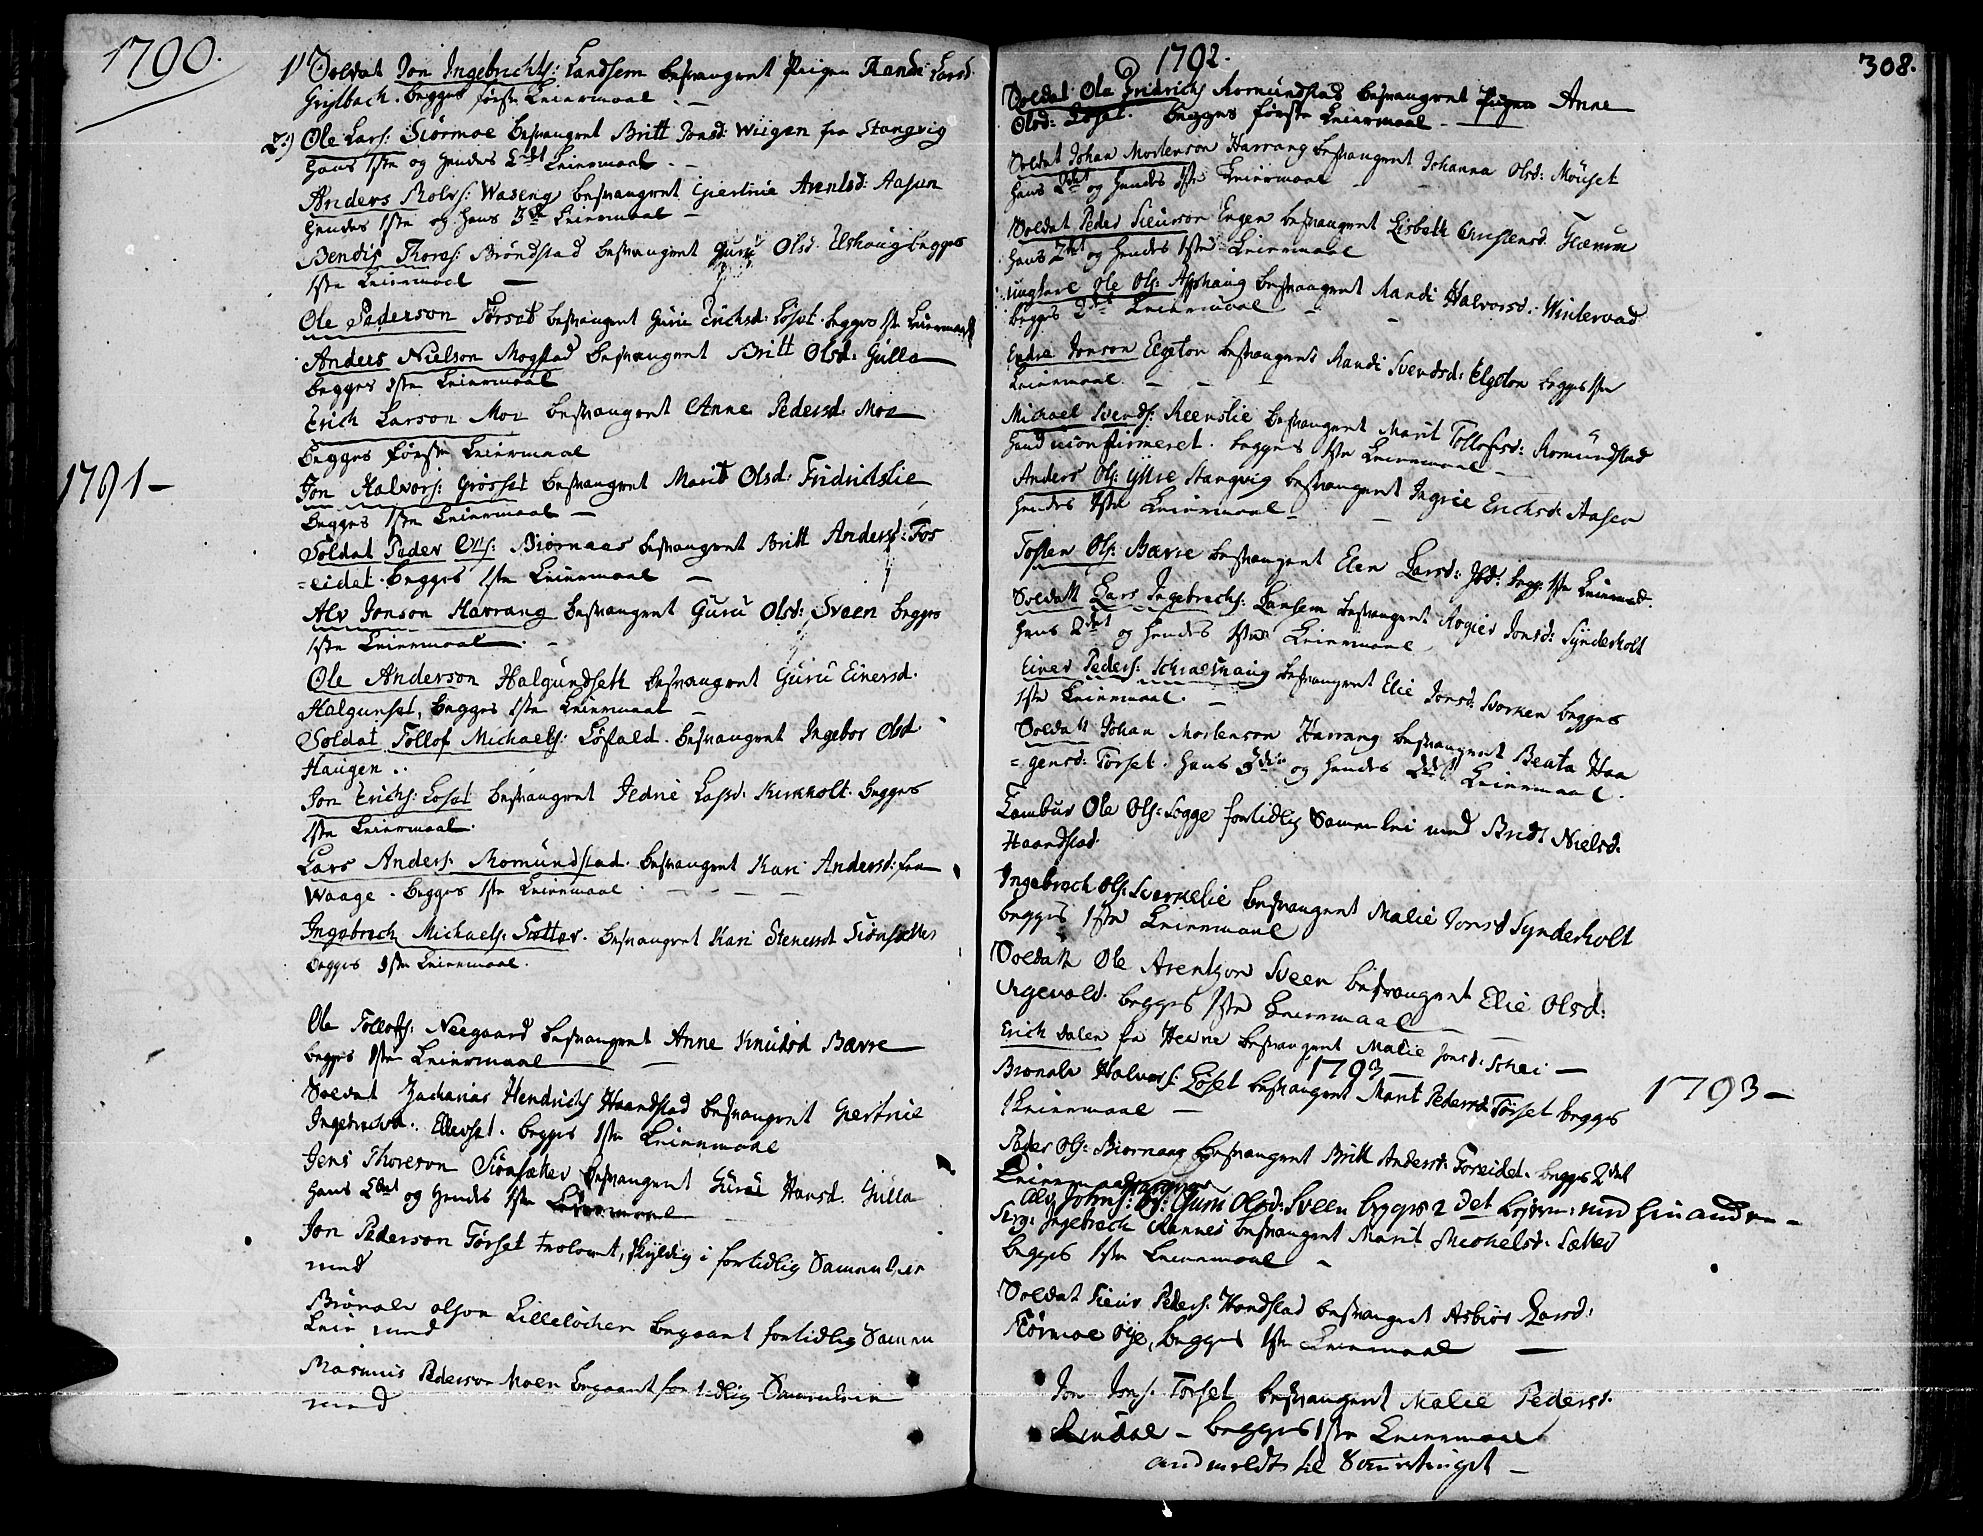 1790.
1) Soldat Jon Ingebrichts: Landsem besvangret Pigen Randi Larsd
Grytbach. begges første Leiermaal. -
2) Ole Lars: Siørmoe besvangret Britt Jonsd: Wiigen fra Stangvig
hans 1ste og hendes 2det Leiermaal. -
Anders Rolvs: Waseng besvangret Giertrue Arntsd: Aasen
hendes 1ste og hans 3die Leiermaal -
Bendis Thores: Brøndstad besvangret Guru Olsd. Elshoug begges
1ste Leiermaal -
Ole Pederson Torset besvangret Guru Erichsd: Løset. begges 1ste Leiermaal
Anders Nielson Mogstad besvangret Britt Olsd: Gulla
begges 1ste Leiermaal
Erich Larson Moe besvangret Anne Pedersd. Moe
begges første Leiermaal
1791 -
Jon Halvors: Grøsset besvangret Marit Olsd: Fridrichslie
begges 1ste Leiermaal -
Soldat Peder Ols: Biørnaas besvangret Britt Andersd: Fos
=eidet. begges 1ste Leiermaal -
Alv Jonson Harrang besvangret Guru Olsd: Sveen begges
1ste Leiermaal. -
Ole Anderson Halgundseth besvangret Guru Einersd.
Halgunset, begges 1ste Leiermaal -
Soldat Tollof Michaels: Løfald. besvangret Ingebor Olsd
Haugen..
Jon Erichs: Løset besvangret Jedrie Larsd. Kirkholt. begges
1ste Leiermaal.
Lars Anders: Romundstad. besvangret Kari Andersd: fra
Waage. begges 1ste Leiermaal. - - -
Ingebrech Michaels: Sætter. besvangret Kari Stenersd Siønsætter
begges 1ste Leiermaal.
Ole Tollofs: Neegaard besvangret Anne Knudsd Bævre
begges 1ste Leiermaal -
Soldat Zacharias Hendrichs Haandstad besvangret Giertrue
Ingebrichsd. Ellevset. begges 1ste Leiermaal
Jens Thoreson Siønsætter besvangret Guru Hansd. Gulla
hans 2det og hendes 1ste Leiermaal -
Jon Pederson Torset trolovet, skyldig i fortidlig Samenleie
med
Brønalv Olson Lilleløchen begaaet fortidlig Samen
Leie med
Rasmus Pederson Moen begaaet fortidlig Samenleie
med
1792.
308.
Soldat Ole Fridrichs Romundstad besvangret Pigen Anne
Olsd: Løset. begges første Leiermaal -
Soldat Johan Mortenson Harrang besvangret Johanna Olsd: Mouset
hans 2det og hendes 1ste Leiermaal -
Soldat Peder Siurson Engen besvangret Lisbeth Christensd. Flæmm
hans 2det og hendes 1ste Leiermaal
ungkarl Ole Ols: Asphaug besvangret Randi Halvorsd: Wintervad
begges 2det Leiermaal - -
Endre Jonson Elgeton besvangret Randi Svendsd: Elgeton begges 1ste
Leiermaal. - - -
Michael Svends: Reenslie besvangret Marit Tollofsd: Romundstad
hend uconfirmeret. begges 1ste Leiermaal -
Anders Ols: Yttre Stangvig besvangret Ingrie Erichsd: Aasen
hendes 1ste Leiermaal - -
Tosten Ols: Bævre besvangret Elen Larsd: Ibd: begges 1ste Leiermaal.
Soldatt Lars Ingebrechs: Lansem besvangret Rogier Jonsd: Synderholt
hans 2det og hendes 1ste Leiermaal
Einer Peders: Schralthaug besvangret Elie Jonsd: Svorken begges
1ste Leiermaal. -
Soldatt Johan Mortenson Harrang besvangret Beata Haa
=gensd: Torset. hans 3die og hendes 2det Leiermaal.
Tambur Ole Ols: Sogge fortidlig Samenlei med Bridt Nielsd.
Haandstad.
Ingebrech Ols: Sverkelie besvangret Malie Jonsd Synderholt
begges 1ste Leiermaal
Soldatt Ole Arentzon Sveen besvangret Elie Olsd:
Agevold. begges 1ste Leiermaal -
Erich Dalen fra Hevne besvangret Malie Jonsd: Schei -
1793 -
Brønalv Halvors: Løset besvangret Marit Pedersd: Torset begges
1 Leiermaal -
1793 -
Peder Ols: Biørnaas besvangret Britt Andersd: Foseidet. begges 2det
Leiermaal
Alv Johns: Guru Olsd: Sveen begges 2det Leierm: med hinanden -
Serg: Ingebrech Rannes besvangret Marit Michelsd. Sætter
begges 1ste Leiermaal -
Soldat Siur Peders: Handstad besvangret Asbiør Larsd:
Siørmoe Øye, begges 1ste Leiermaal -
Jon Jons: Torset besvangret Malie Pedersd.
Rindal - begges 1ste Leiermaal
anmeldt til Somertinget -